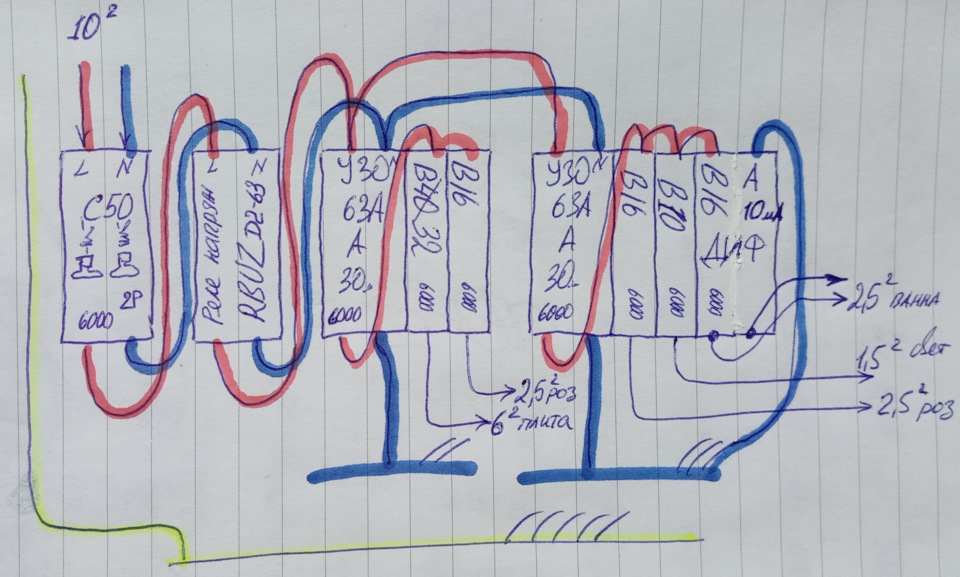 10²
L N
С50
2P
6000
L N
Реле напряж
RBUZ D2-63
УЗО N
63А
А
30
6000
6000
В16
6000
УЗО N
63А
А
30
6000
В16
6000
В10
6000
В16
6000
А
10мА
ДИФ
2,5² ванна
1,5² свет
2,5² роз
2,5² роз
6² плита